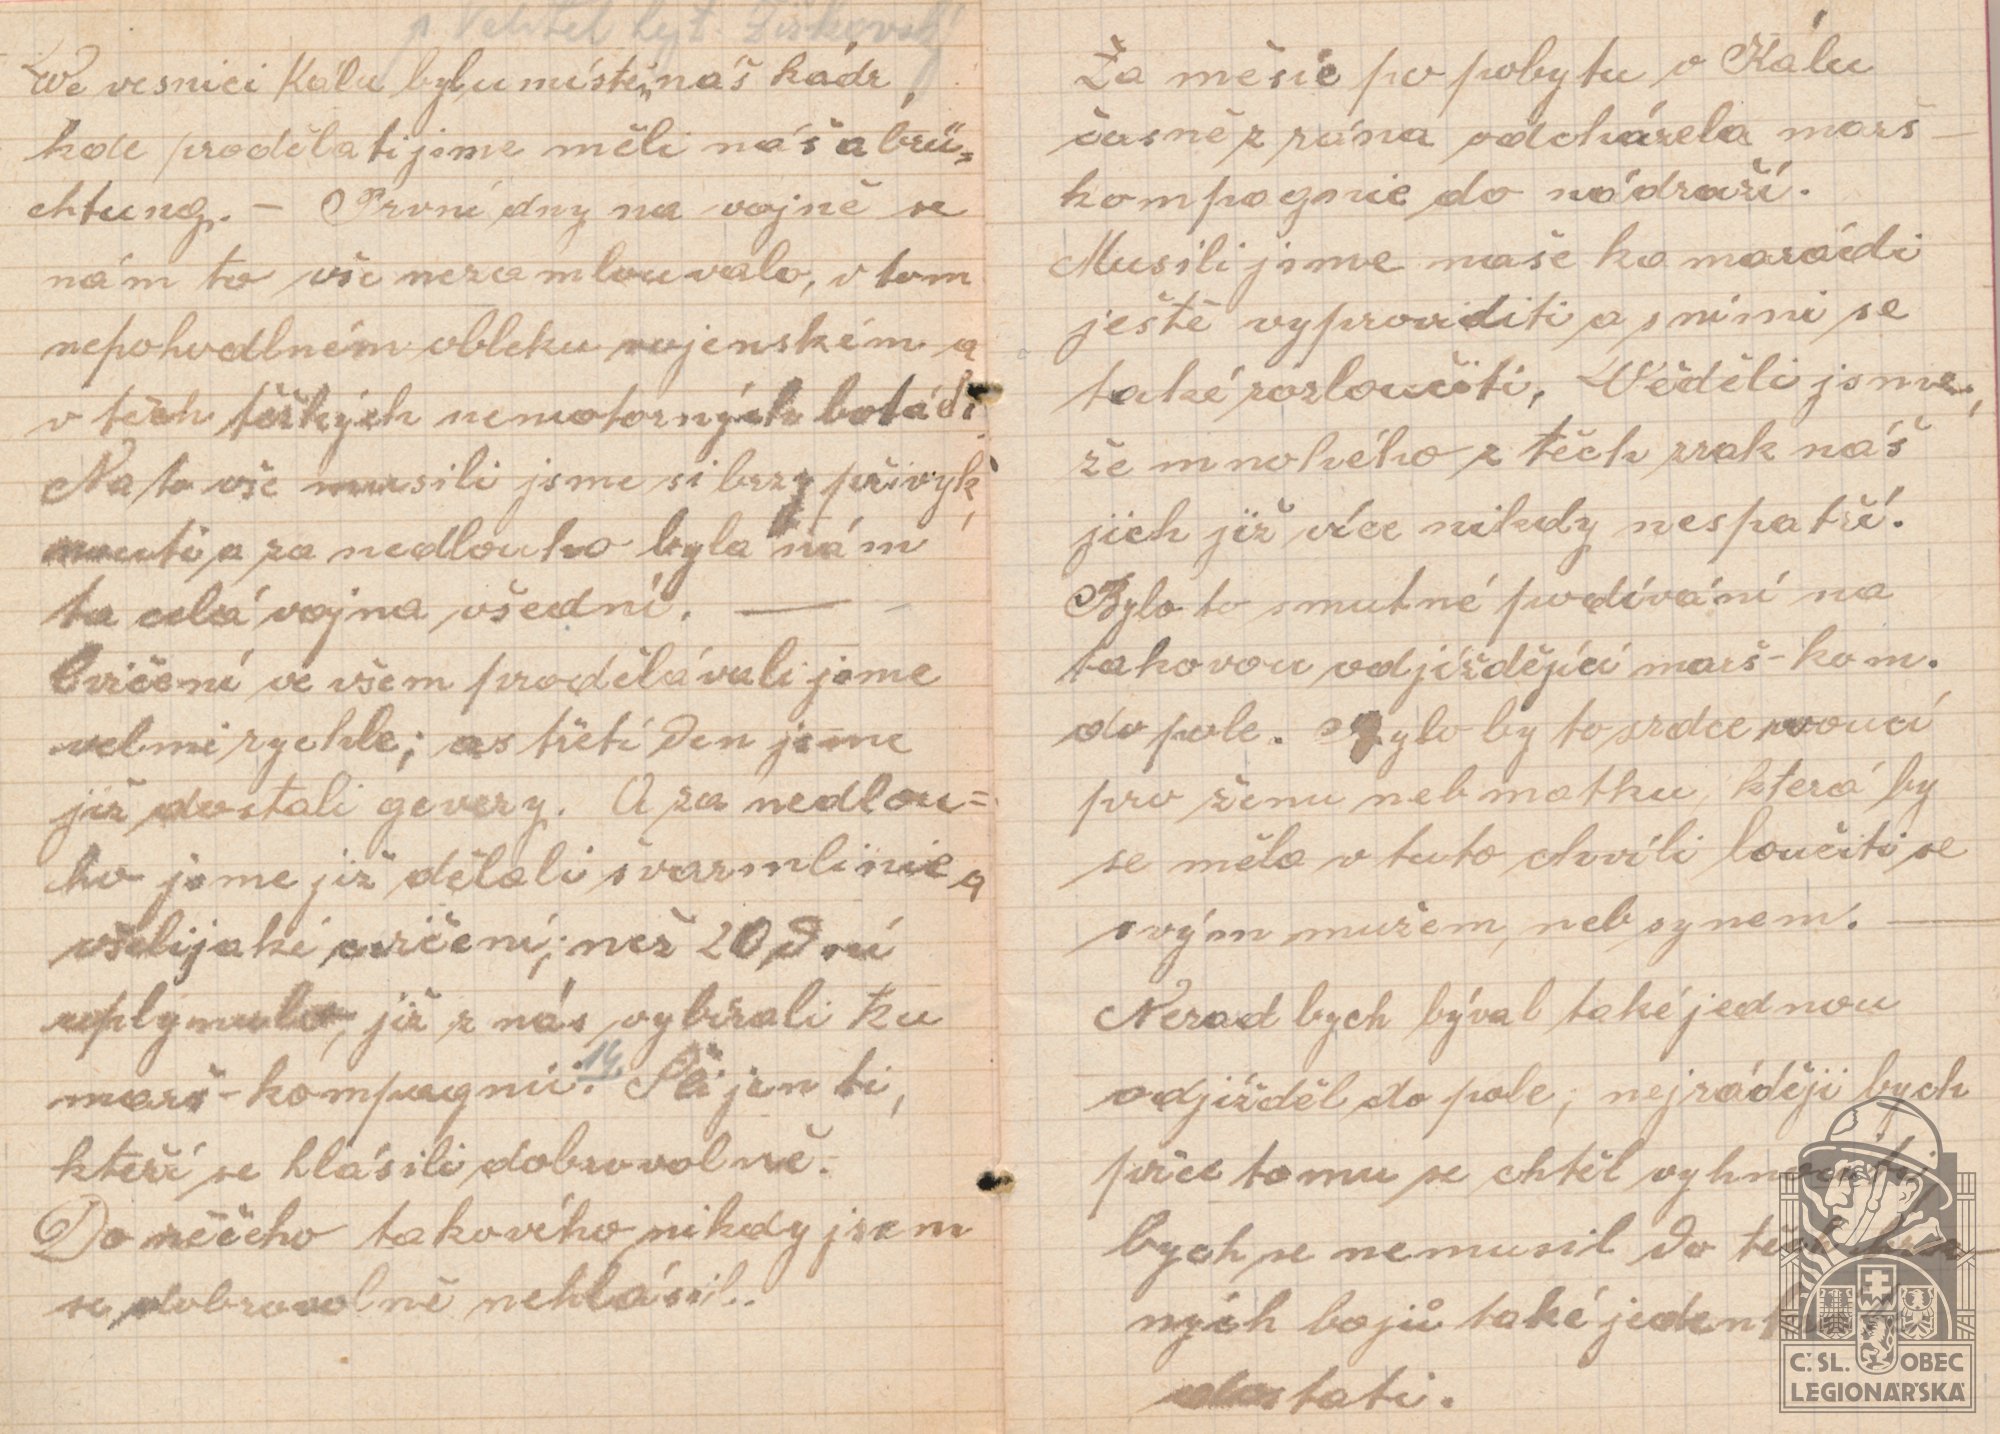 p. Velitel byt. Žiškovský
We vesnici Kálu byl umístěn náš kádr
kde prodělati jsme měli náš abrü=
chtung. — První dny na vojně se
nám to vše nezamlouvalo, v tom
nepohodlném obleku vojenském a
v těch těžkých nemotorných botách
Na to vše musili jsme si brzy přivyk
nouti a za nedlouho byla nám
ta celá vojna všední. —
Cvičení ve všem prodělávali jsme
velmi rychle; as třetí den jsme
již dostali gevery. A za nedlou=
ho jsme již dělali švarmlinie a
všelijaké cvičení; než 20 dní
uplynulo, již z nás vybírali ku
marš-kompagnii. 14. Šli jen ti,
kteří se hlásili dobrovolně.
Do něčeho takového nikdy jsem
se dobrovolně nehlásil.
Za měsíc po pobytu v Kálu
časně z rána odcházela marš-
kompagnie do nádraží.
Musili jsme naše komarádi
ještě vyprovoditi a s nimi se
také rozloučiti, Věděli jsme,
že mnohého z těch zrak náš
jich již více nikdy nespatří.
Bylo to smutné podívání na
takovou odjíždějící marš-kom.
do pole. Bylo by to srdce rvoucí
pro ženu neb matku, která by
se měla v tuto chvíli loučiti se
svým mužem, neb synem. —
Nerad bych býval také jednou
odjížděl do pole, nejráději bych
přec tomu se chtěl vyhnouti
bych se nemusil do těch krva-
ných bojů také jeden
dostati.
Č. SL. OBEC
LEGIONÁŘSKÁ